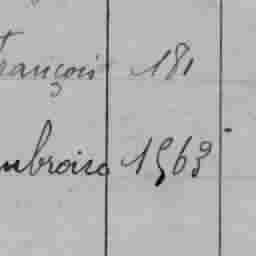 François 181
mbroise 1563